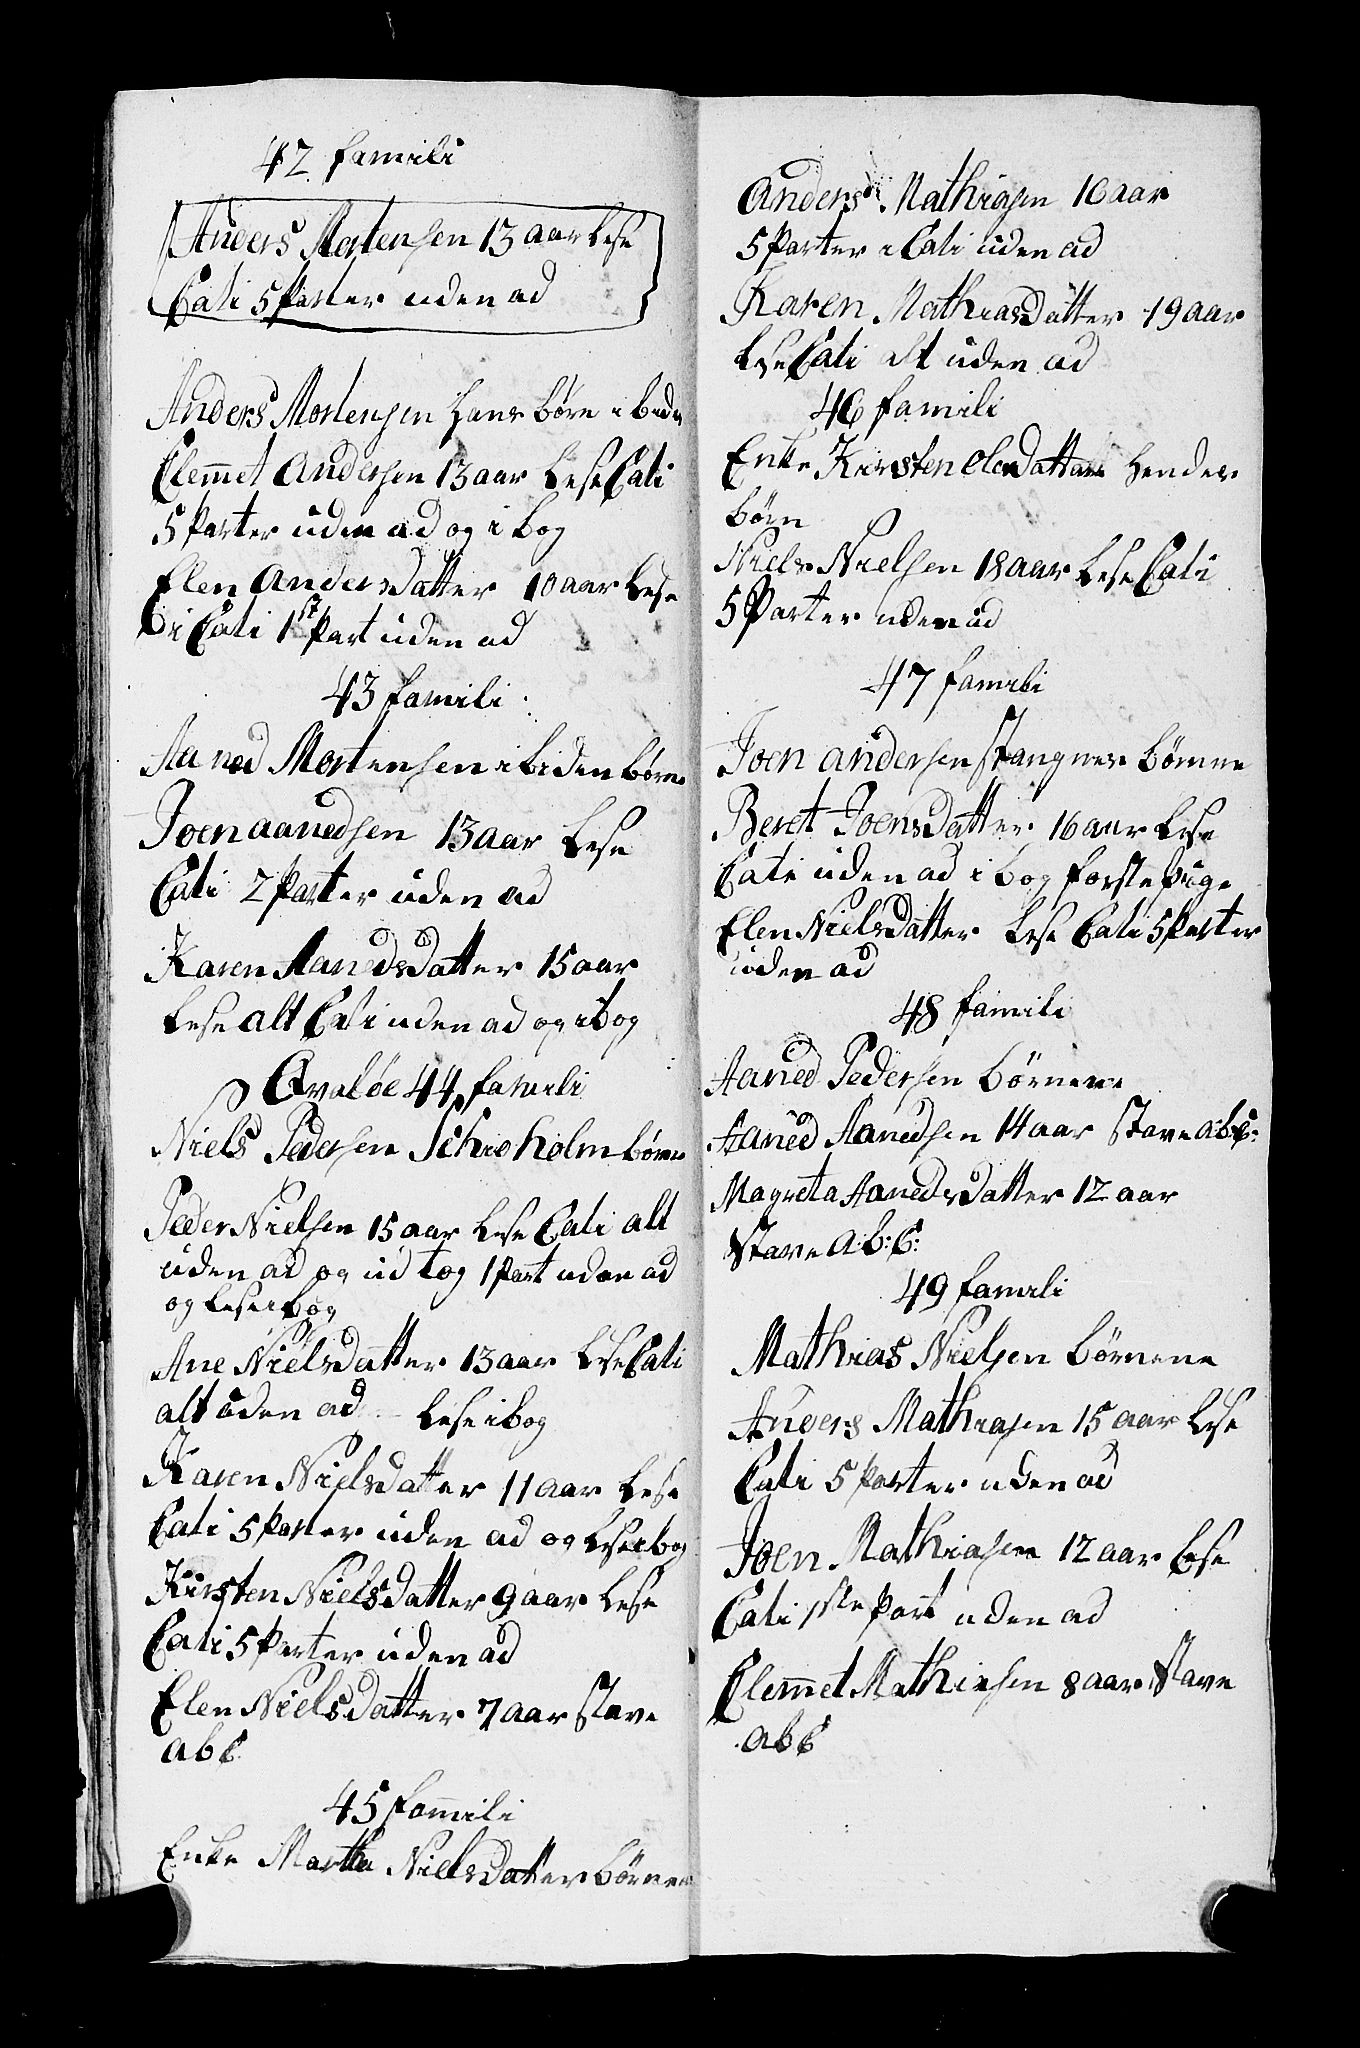 42 famili
Anders Mortensen 13 aar Lese
Cati 5 Parter uden ad
Anders Mortensen Hans børn ibid
Clemmet Andersen 13 aar Lese Cati
5 Parter uden ad og i bog
Elen Andersdatter 10 aar Lese
i Cati 1st Part uden ad
43 famili
Aaned Mortensen ibiden børn
Joen aanedsen 13 aar Lese
Cati 2 Parter uden ad
Karen Aanedsdatter 15 aar
Lese alt Cati uden ad og i bog
Qvaløe 44 famili
Niels Pedersen Schieholm børn
Peder Nielsen 15 aar Lese Cati alt
uden ad og ud tog 1 Part uden ad
og Lese i bog
Ane Nielsdatter 13 aar Lese Cati
alt uden ad Lese i bog
Karen Nielsdatter 11 aar Lese
Cati 5 Parter uden ad og Lese i bog
Kirsten Nielsdatter 9 aar Lese
Cati 5 Parter uden ad
Elen Nielsdatter 7 aar stave
abc
45 fammili
Enke Martha Nielsdatter børnen
Anders Mathiasen 10 aar
5 Parter i Cati uden ad
Karen Mathiasdatter 19 aar
Lese Cati alt uden ad
46 famili
Enke Kirsten Olsdatter Hendes
børn
Niels Nielsen 18 aar Lese Cati
5 Parter uden ad
47 famili
Joen andersen Stangnes børnne
Beret Joensdatter 16 aar Lese
Cati uden ad i bog første Puge
Elen Nielsdatter Lese Cati 5 Parter
uden ad
48 famili
Aaned Pedersen børnene
Aaned Aanedsen 14 aar Stave a:b:c:
Magreta Aanedsdatter 12 aar
Stave A:b:C:
49 famili
Mathias Nielsen børnene
Anders Mathiasen 15 aar Lese
Cati 5 Parter uden ad
Joen Mathiasen 12 aar Lese
Cati 1ste Part uden ad
Clemmet Mathiesen 8 aar Stave
abc